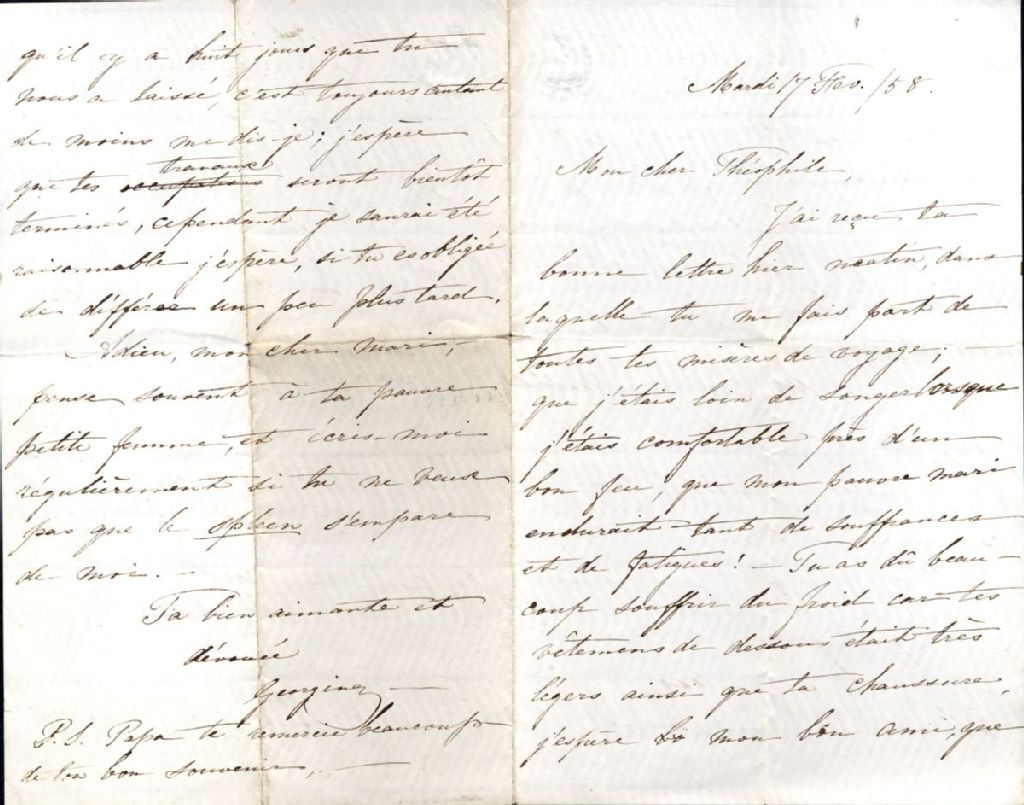 Mardi 17 Fev. /58.
Mon cher Théophile,
J'ai reçu ta
bonne lettre hier matin, dans
laquelle tu me fais part de
toutes tes misères de voyage; —
que j'étais loin de songer lorsque
j'étais comfortable près d'un
bon feu, que mon pauvre mari
endurait tant de souffrances
et de fatigues! — Tu as dû beau-
coup souffrir du froid car tes
vêtemens de dessous était très
légers ainsi que ta chaussure,
j'espère mon bon ami, que
qu'il y a huit jours que tu
nous a laissé, c'est toujours autant
de moins me dis-je; j'espère
que tes travaux seront bientôt
terminés, cependant je saurai été
raisonnable j'espère, si tu es obligée
de différer un peu plus tard.
Adieu, mon cher mari, —
pense souvent à ta pauvre
petite femme, et écris-moi
régulièrement si tu ne veux
pas que le spleen s'empare
de moi. —
Ta bien aimante et
dévouée
Georgine —
P.S. Papa te remercie beaucoup
de ton bon souvenir. —